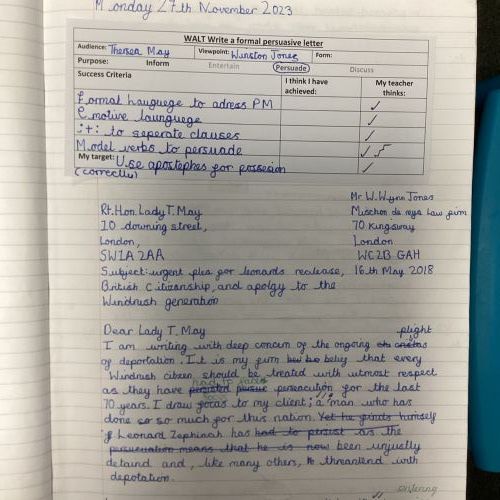 Monday 27th November 2023
WALT Write a formal persuasive letter
Audience: Theresa May Viewpoint: Winston Jones Form:
Purpose: Inform Entertain Persuade Discuss
Success Criteria I think I have achieved: My teacher thinks:
Formal languege to adress PM
Emotive launguege
;+: to seperate clauses
Model verbs to persuade
My target: Use apostephes for possesion
(correctly)
Mr W.Wynn Jones
Rt.Hon. Lady T. May Mischon de reya Law firm
10 downing street, 70 Kingsway
London, London
SW1A 2AA WC2B 6AH
Subject: urgent plea for leonards realease, 16th May 2018
British Citizenship, and apolgy to the
Windrush generation
Dear Lady T. May plight
I am writing with deep concern of the ongoing
of deportation. It is my firm belief that every
Windrush citizen should be treated with utmost respect
as they have had to face persecution for the last
70 years. I draw focus to my client; a man who has
done so so much for this nation. Yet he finds himself
Leonard Zephinah has had to persist as the
persecuation means that he is now been unjustly
detaind and, like many others, threantend with
depotation.